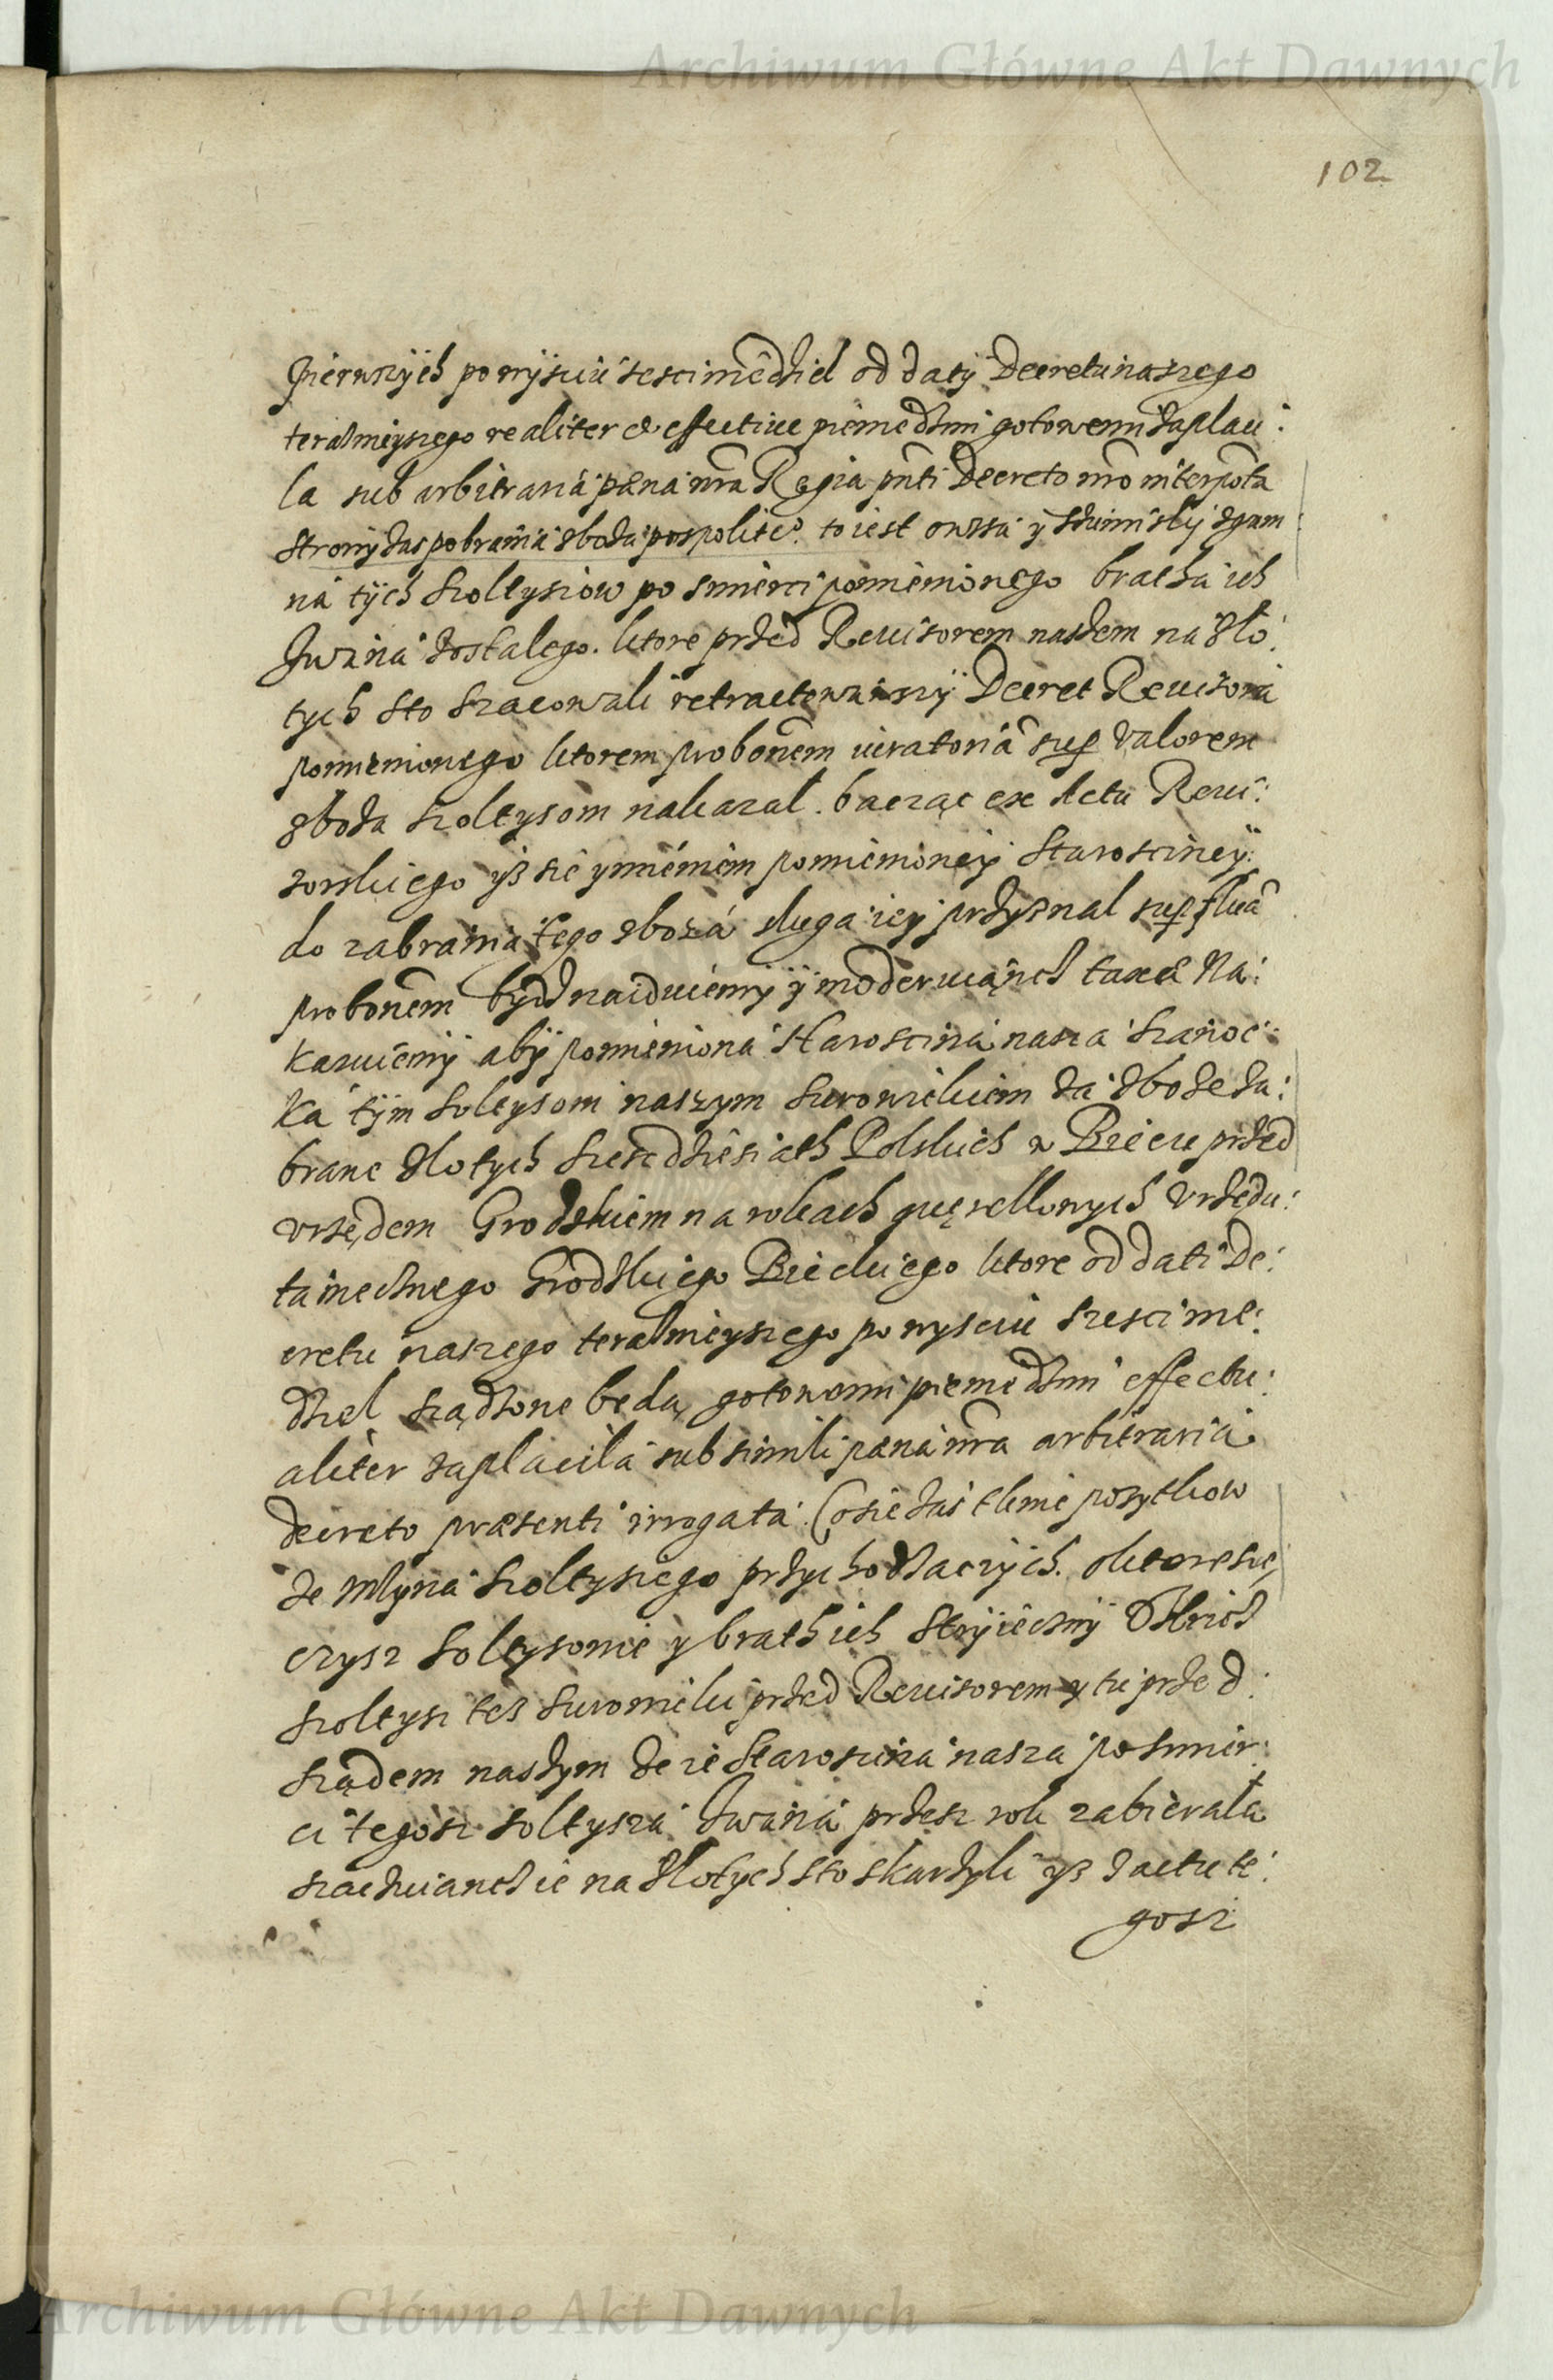 Archiwum Główne Akt Dawnych
102
Pierwszych po wyściu sesci niedziel od daty Decretu naszego
teraznieyszego realiter et effective pieniedzmi gotowemi zaplaci:
la sub arbitraria paena nra Regia pnti Decreto nro interposita
Strony zas pobrania zboza pospolite? to iest owsa y
na tych szoltysiow po smierci pomienionego bratha ich
Iwana zostalego. ktore przed Revisorem naszem na zlo:
tych sto szacowali retractowawszy Decret Revisora
pomienionego ktorem probonem iuratoria sup valorem
zboza szoltysom nakazal. bacząc ex Actu Revi:
zorskiego yz sie ymieniem pomienioney Starosciney
do zabrania tego zboza sluga iey przyznal supflua
probonem bydz naiduiemy y moderuiącz taxe Na:
kazuiemy aby pomieniona Starostina nasza Sanoc:
ka tym soltysom naszym Surowickiem za zboze za:
brane zlotych szescdziesiath Polskich w Bieczu przed
vrzędem Grodzkiem na rokach querellowych Vrzędu:
tamecznego Grodzkiego Bieckiego ktore od dati De:
cretu naszego teraznieyszego po wysciu szesci nie:
dziel sządzone beda, gotowemi pieniedzmi effectu:
aliter zaplacila sub simili paena nra arbitraria
decreto praesenti irrogata. Co sie zas tknie pozytkow
ze Mlyna szoltysiego przychodzaczych. oktore sie,
czysz soltysowie y brath ich Stryieczny
szoltysz tez Surowicki przed Revisorem y tu przed:
sządem naszym ze ie Starostina nasza po smier:
ci tegosz soltysza Iwana przesz rok zabierała
szacuiancz ie na zlotych sto skarzyli yz z actu te:
gosz
Archiwum Główne Akt Dawnych